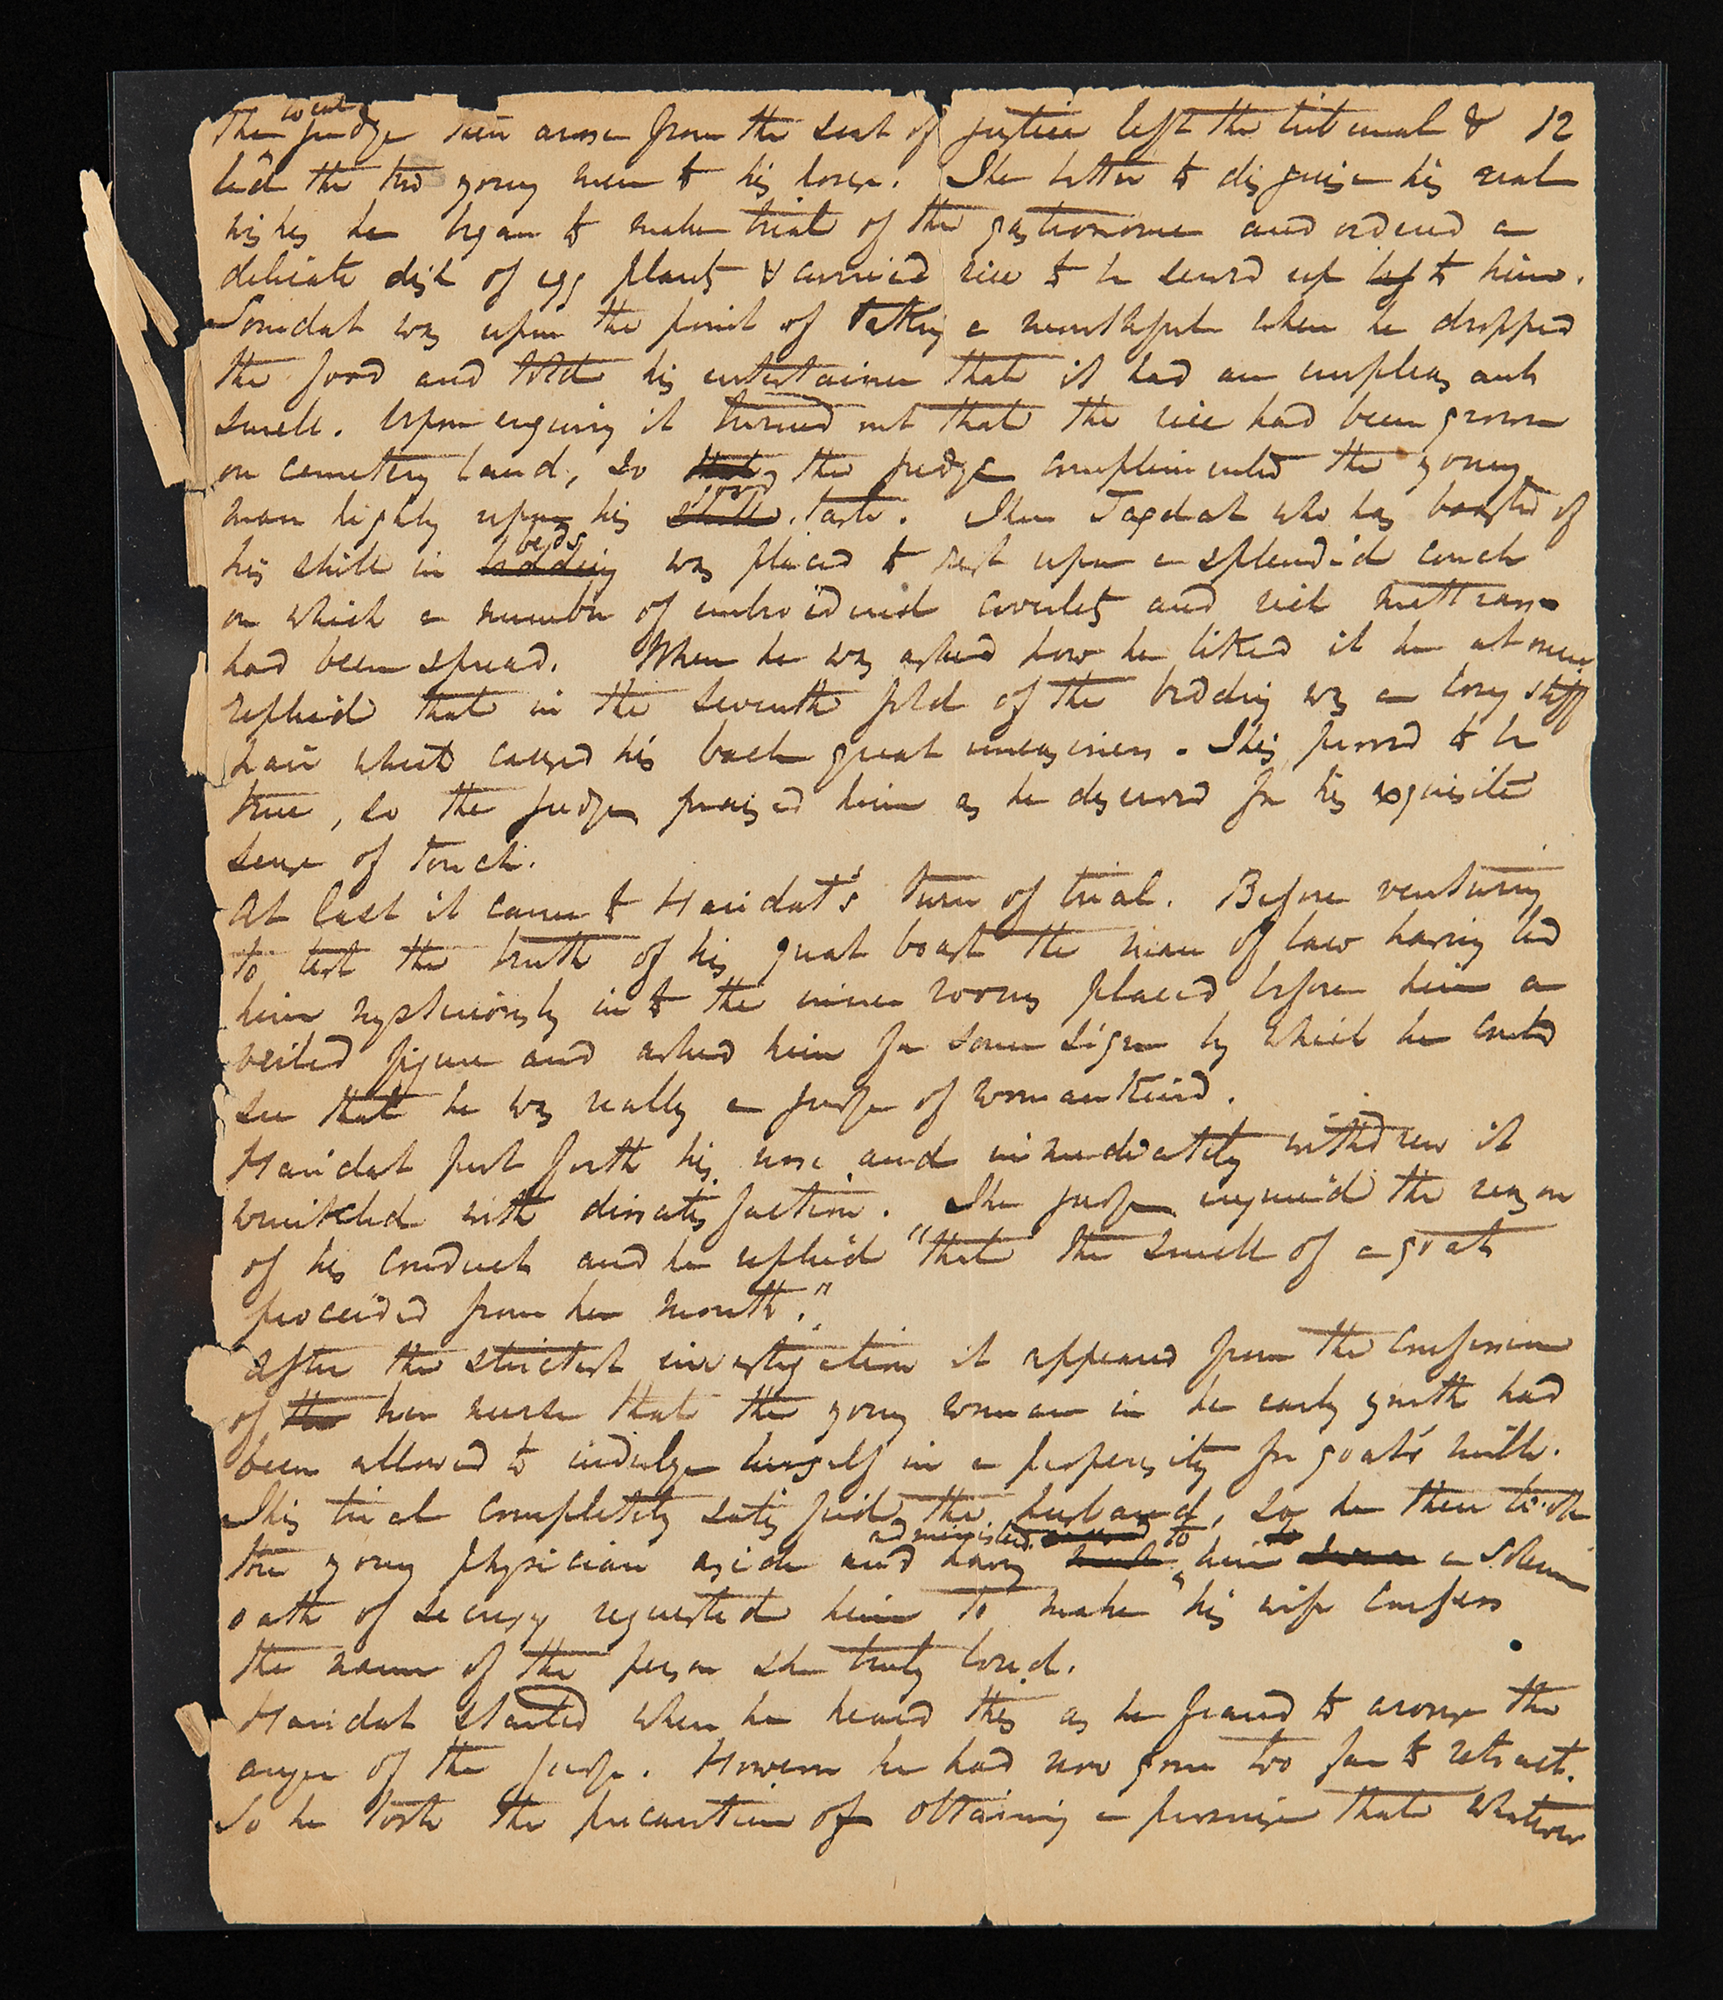 The ^local judge then arose from the seat of justice left the tribunal & 12
led the two young men to his house. The better to disguise his real
wishes he began to make trial of the gastronome and ordered a
delicate dish of egg plants & curried rice to be served up to him.
Somdat was upon the point of taking a mouthful when he dropped
the food and told his entertainer that it had an unpleasant
smell. Upon enquiry it turned out that the rice had been grown
on cemetery land, so the judge complimented the young
man highly upon his taste. Then Jagdat who has boasted of
his skill in beds was placed to rest upon a splendid couch
on which a number of embroidered coverlets and rich mattrass
had been spread. When he was asked how he liked it he at once
replied that in the seventh fold of the bedding was a long stiff
hair which caused his back great uneasiness. This proved to be
true, so the judge praised him as he deserved for his exquisite
sense of touch.
At last it came to Haridat's turn of trial. Before venturing
to test the truth of his great boast the man of law having led
him mysteriously into the inner rooms placed before him a
veiled figure and asked him for some sign by which he could
see that he was really a judge of womankind.
Haridat put forth his nose and immediately withdrew it
wrinkled with dissatisfaction. The judge enquired the reason
of his conduct and he replied "that the smell of a goat
proceeded from her mouth."
After the strictest investigation it appeared from the confession
of her nurse that the young woman in her early youth had
been allowed to indulge herself in a propensity for goat's milk.
This trial completely satisfied the husband, so he then took
the young physician aside and having administered to him a solemn
oath of secrecy requested him to make his wife confess
the name of the person she truly loved.
Haridat started when he heard this as he feared to arouse the
anger of the judge. However he had now gone too far to retract.
So he took the precaution of obtaining a promise that whatever